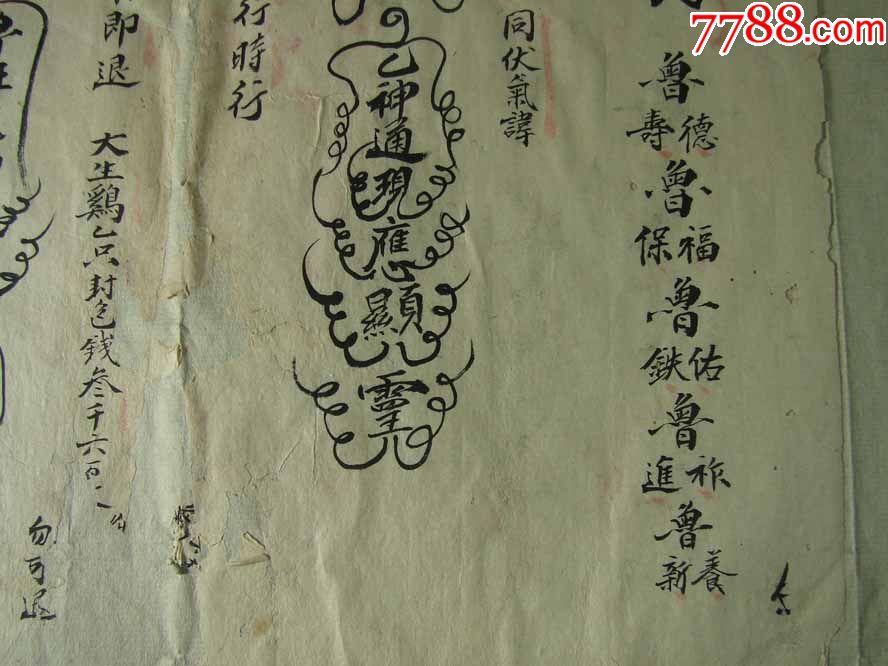 7788.com
魯
德
壽
魯
福
保
魯
佑
鉄
魯
祚
進
魯
養
新
同伏氣諱
乙神通現應顯靈
行時行
即退
大生鷄
只封包錢叄千六百
勿可退